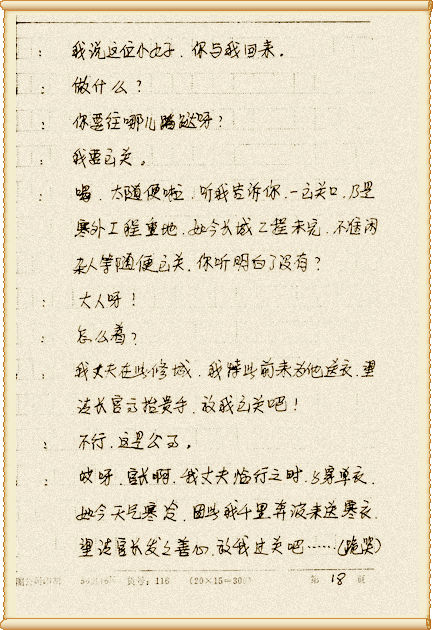 : 我说这位小女子，你与我回来。
: 做什么？
: 你要往哪儿蹓跶呀？
: 我要出关。
: 喝，太随便啦，听我告诉你，一出关口，乃是
塞外工程重地，如今长城工程未完，不准闲
杂人等随便出关，你听明白了没有？
: 大人呀！
: 怎么着？
: 我丈夫在此修城，我特此前来为他送衣，望
请长官高抬贵手，放我出关吧！
: 不行，这是公事。
: 哎呀，官长啊，我丈夫临行之时，只穿单衣，
如今天气寒冷，因此我千里奔波来送寒衣，
望请官长发发善心，放我过关吧……(跪哭)
货号：116 (20×15=300) 第 18 页